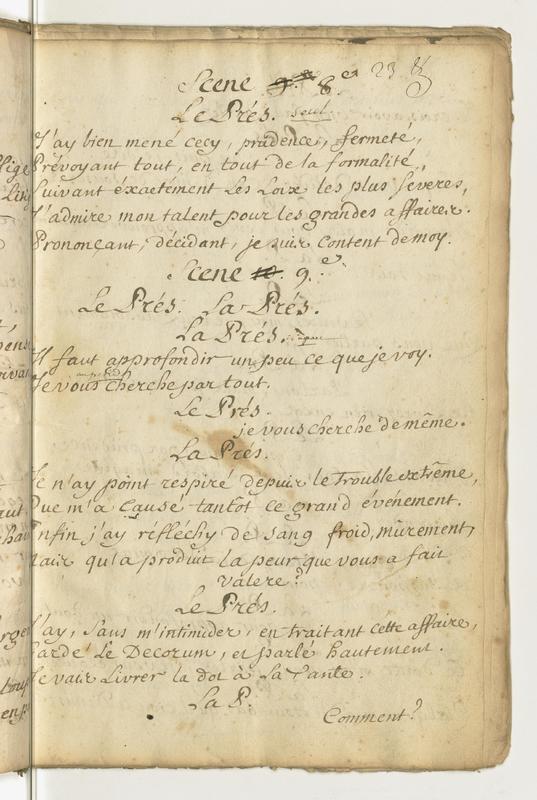 Scene 8.e 23
Le Prés. seul
J'ay bien mené cecy, prudence, fermeté,
Prévoyant tout, en tout de la formalité,
Suivant éxactement Les Loix les plus severes,
J'admire mon talent pour les grandes affaires.
Prononçant, décidant, je suis content de moy.
Scene 10 9.e
Le Prés. La Prés.
La Prés.
Il faut approfondir un peu ce que je voy.
Je vous cherche par tout.
Le Prés.
je vous cherche de même.
La Prés.
Je n'ay point respiré depuis le trouble extrême,
Que m'a causé tantôt ce grand événement.
Enfin j'ay refléchy de sang froid, mûrement,
Mais qu'a produit la peur que vous a fait
Valere?
Le Prés.
J'ay, sans m'intimider, en traitant cette affaire,
Gardé Le Decorum, et parlé hautement.
Je vais Livrer la dot à La Tante.
La P.
Comment?